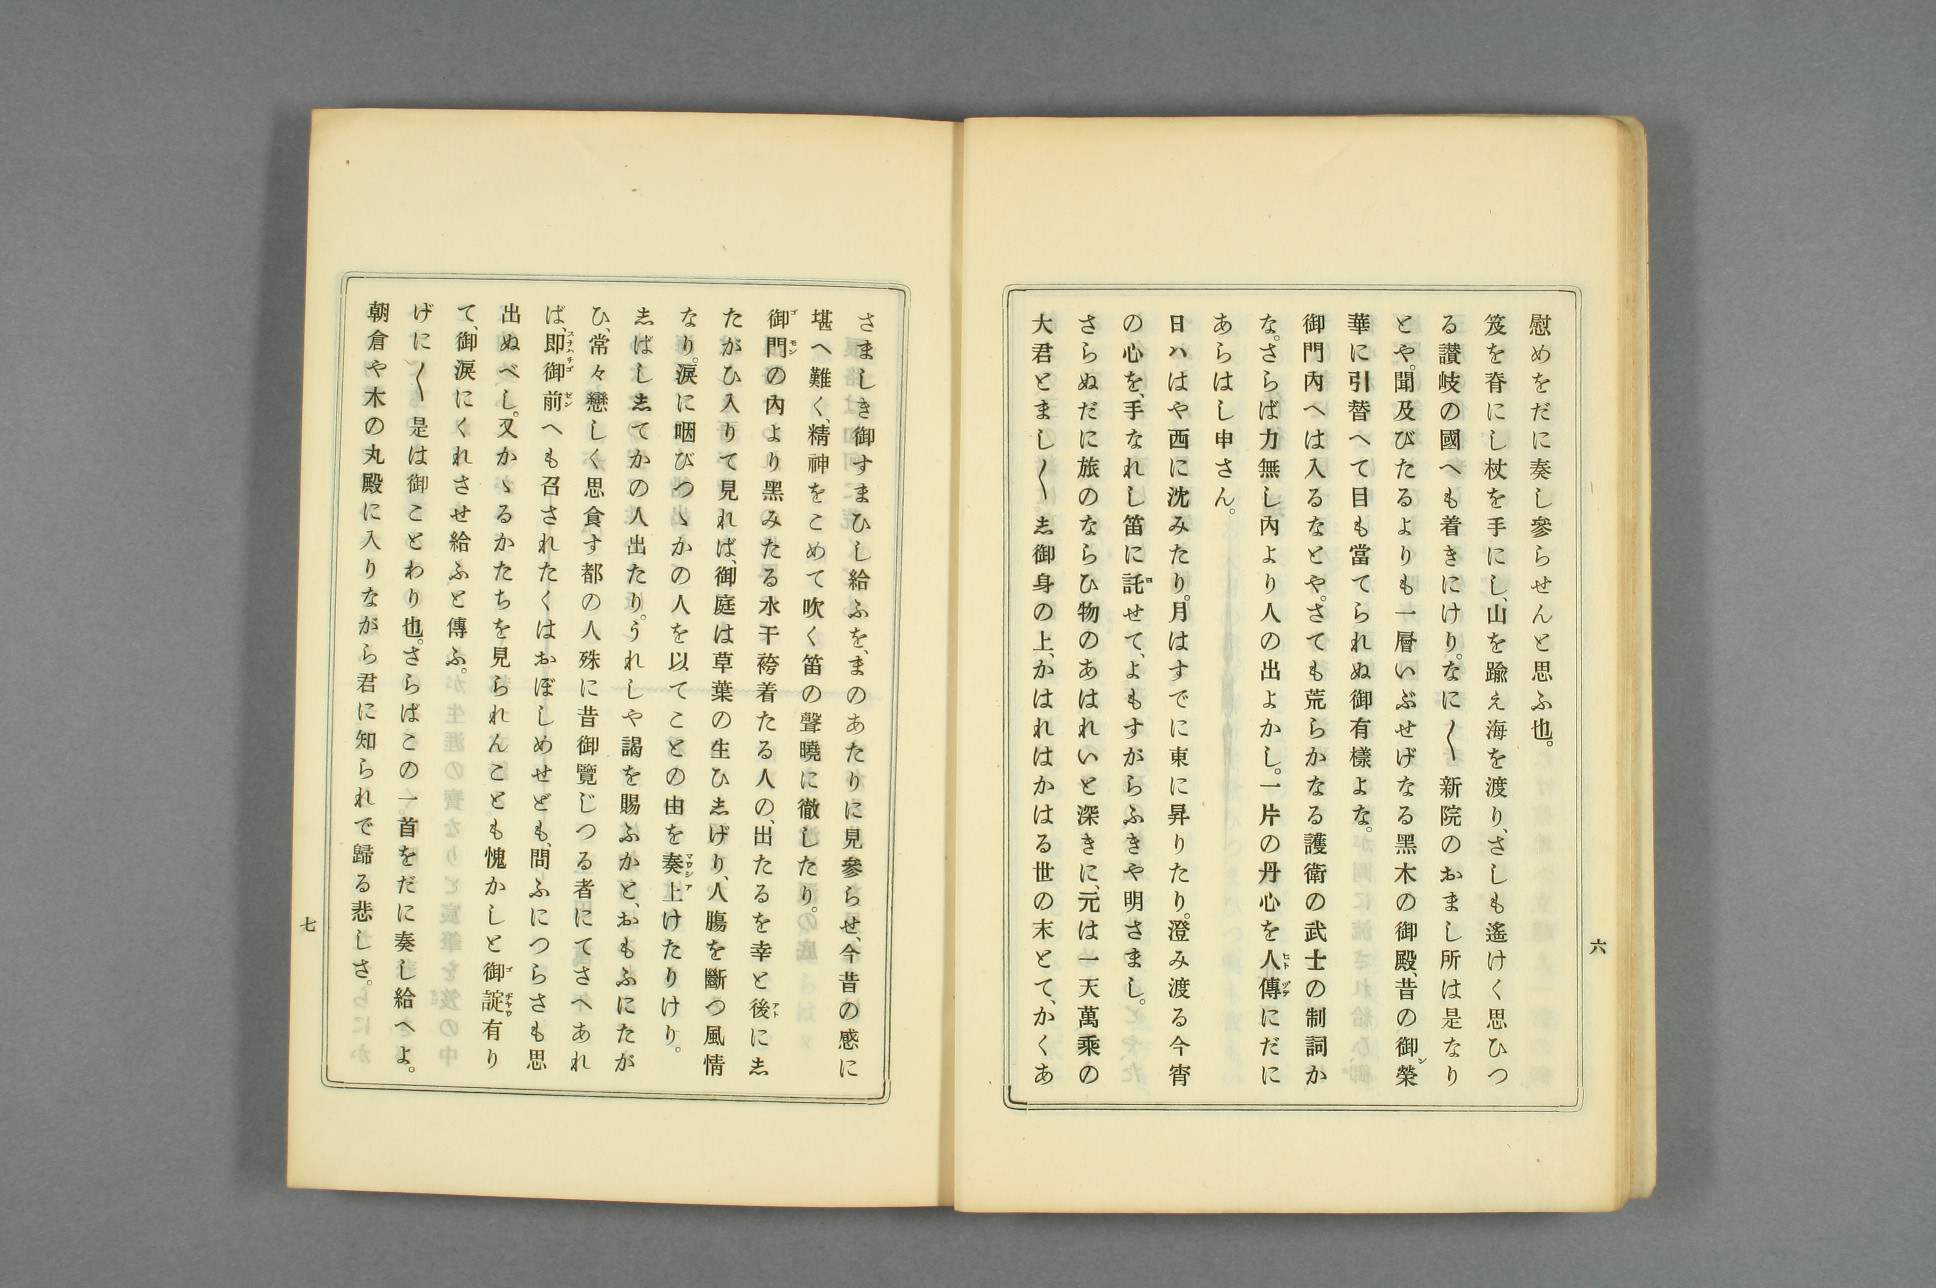 六
慰めをだに奏し參らせんと思ふ也。
笈を脊にし杖を手にし、山を踰え海を渡り、さしも遙けく思ひつ
る讃岐の國へも着きにけり。なに〱新院のおまし所は是なり
とや。聞及びたるよりも一層いぶせげなる黑木の御殿、昔の御榮
華に引替へて目も當てられぬ御有樣よな。
御門內へは入るなとや。さても荒らかなる護衞の武士の制詞か
な。さらば力無し內より人の出よかし。一片の丹心を人傳にだに
あらはし申さん。
日ハはや西に沈みたり。月はすでに東に昇りたり。澄み渡る今宵
の心を、手なれし笛に託せて、よもすがらふきや明さまし。
さらぬだに旅のならひ物のあはれいと深きに、元は一天萬乘の
大君とまし〱志御身の上、かはれはかはる世の末とて、かくあ
さましき御すまひし給ふを、まのあたりに見參らせ、今昔の感に
堪へ難く、精神をこめて吹く笛の聲曉に徹したり。
御門の內より黑みたる水干袴着たる人の、出たるを幸と後に志
たがひ入りて見れば、御庭は草葉の生ひ志げり、人膓を斷つ風情
なり。淚に咽びつゝかの人を以てことの由を奏上けたりけり。
志ばし志てかの人出たり。うれしや謁を賜ふかと、おもふにたが
ひ、常々戀しく思食す都の人殊に昔御覽じつる者にてさへあれ
ば、即御前へも召されたくはおぼしめせども、問ふにつらさも思
出ぬべし。又かゝるかたちを見られんことも愧かしと御諚有り
て、御淚にくれさせ給ふと傳ふ。
げに〱是は御ことわり也。さらばこの一首をだに奏し給へよ。
朝倉や木の丸殿に入りながら君に知られで歸る悲しさ。
七